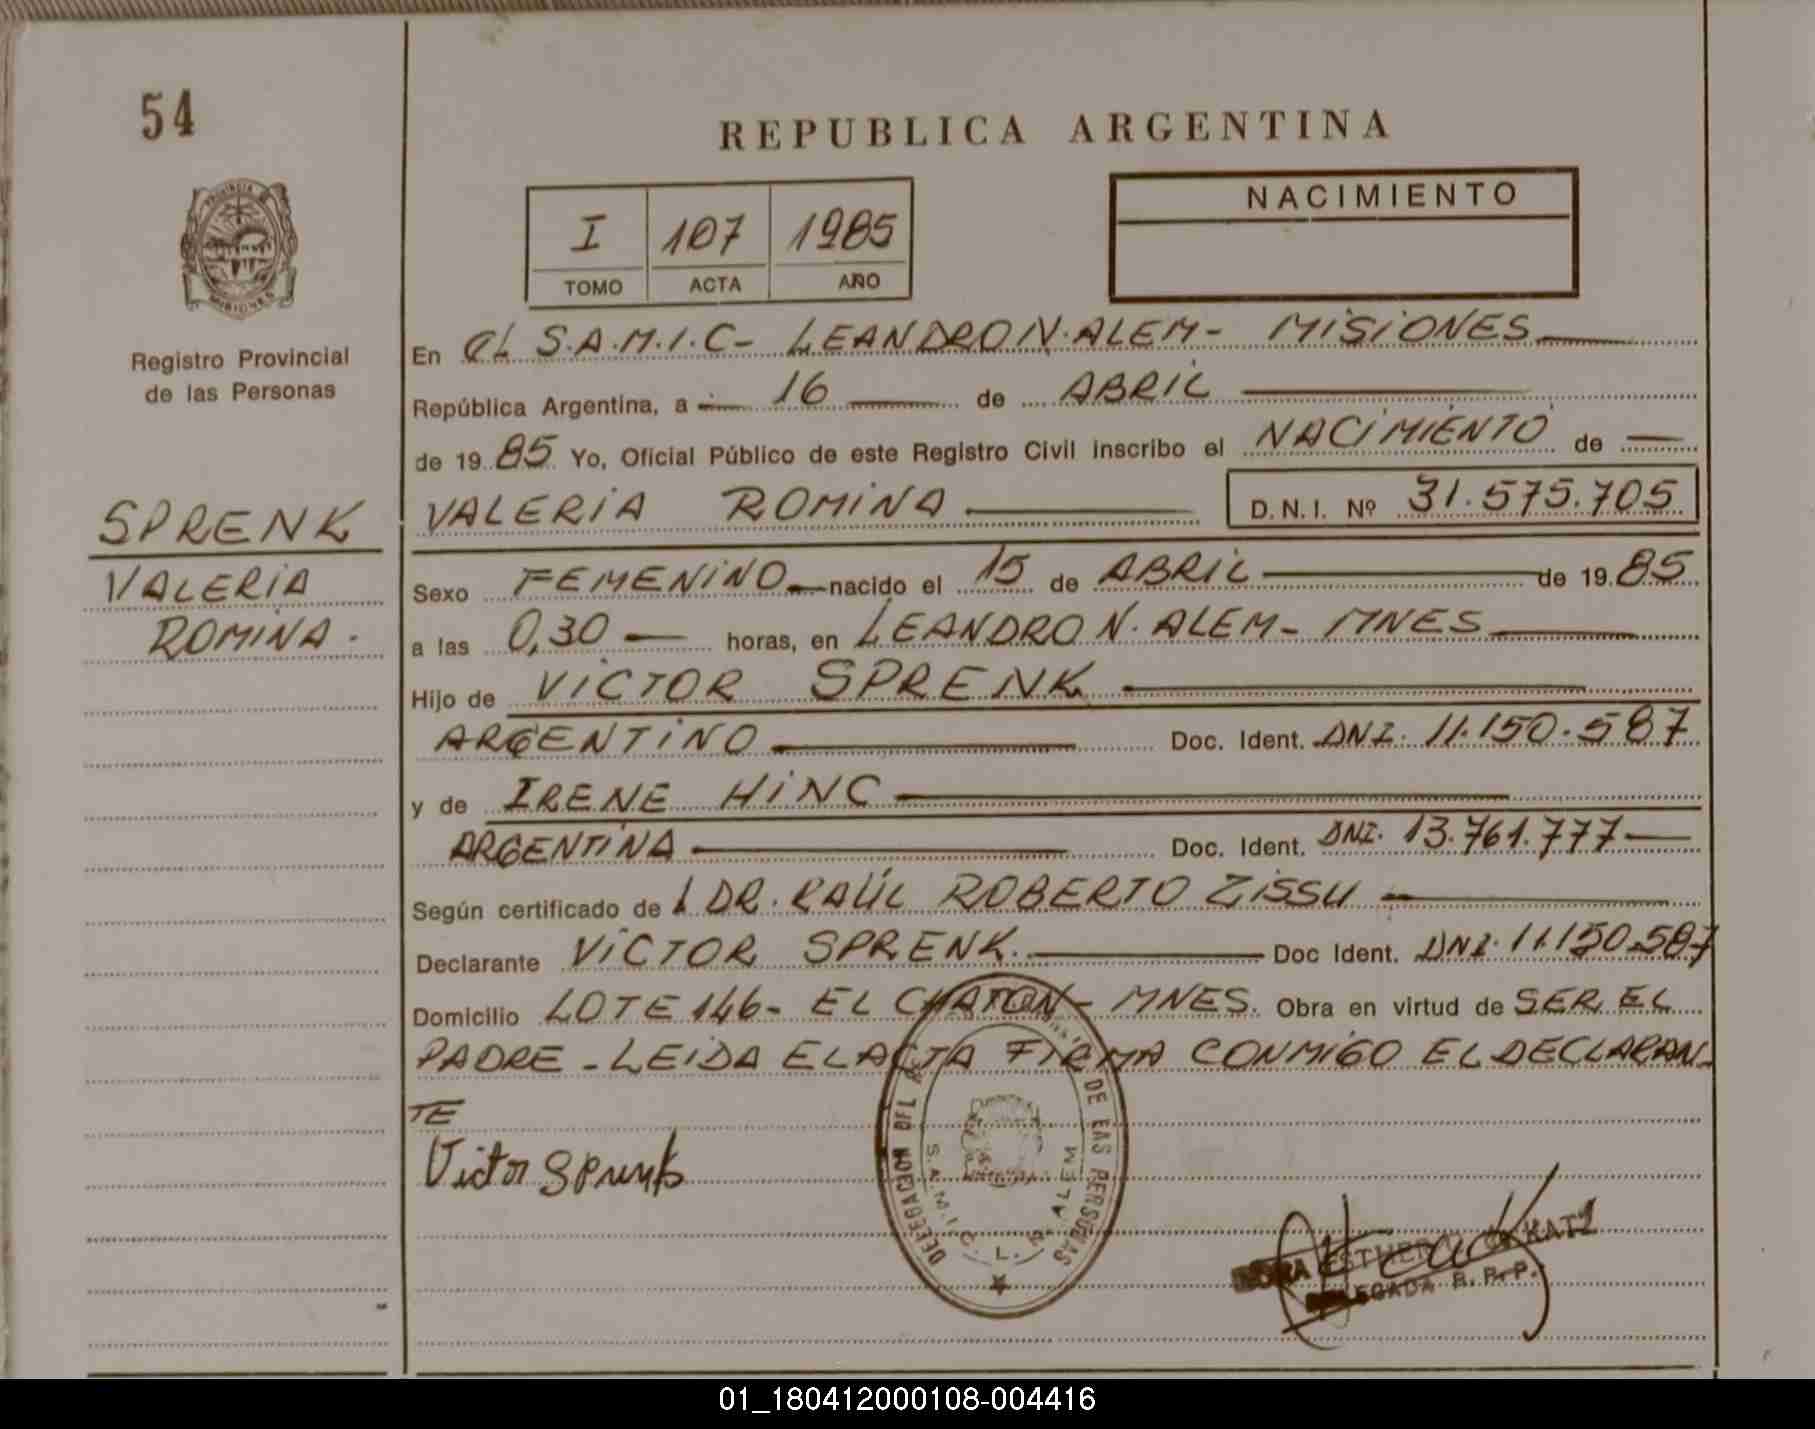 54
REPUBLICA ARGENTINA
PROVINCIA
MISIONES
Registro Provincial
de las Personas
I 107 1985
TOMO ACTA AÑO
NACIMIENTO
SPRENK
VALERIA
ROMINA.
En EL S.A.M.I.C- LEANDRO N. ALEM- MISIONES
República Argentina, a 16 de ABRIL
de 1985 Yo, Oficial Público de este Registro Civil inscribo el NACIMIENTO de
VALERIA ROMINA D.N.I. Nº 31.575.705
Sexo FEMENINO nacido el 15 de ABRIL de 1985
a las 0,30 horas, en LEANDRO N. ALEM- MNES
Hijo de VICTOR SPRENK
ARGENTINO Doc. Ident. DNI. 11.150.587
y de IRENE HINC
ARGENTINA Doc. Ident. DNI. 13.761.777
Según certificado de L DR. RAÚL ROBERTO ZISSU
Declarante VICTOR SPRENK. Doc Ident. DNI. 11.150.587
Domicilio LOTE 146- EL CHATON- MNES. Obra en virtud de SER EL
PADRE - LEIDA EL ACTA FIRMA CONMIGO EL DECLARAN-
TE
Victor Sprenk
DELEGACION DEL DE LAS PERSONAS
S.A.M.I.C. L. N. ALEM
ESTHER KATZ
DELEGADA R.P.P.
01_180412000108-004416